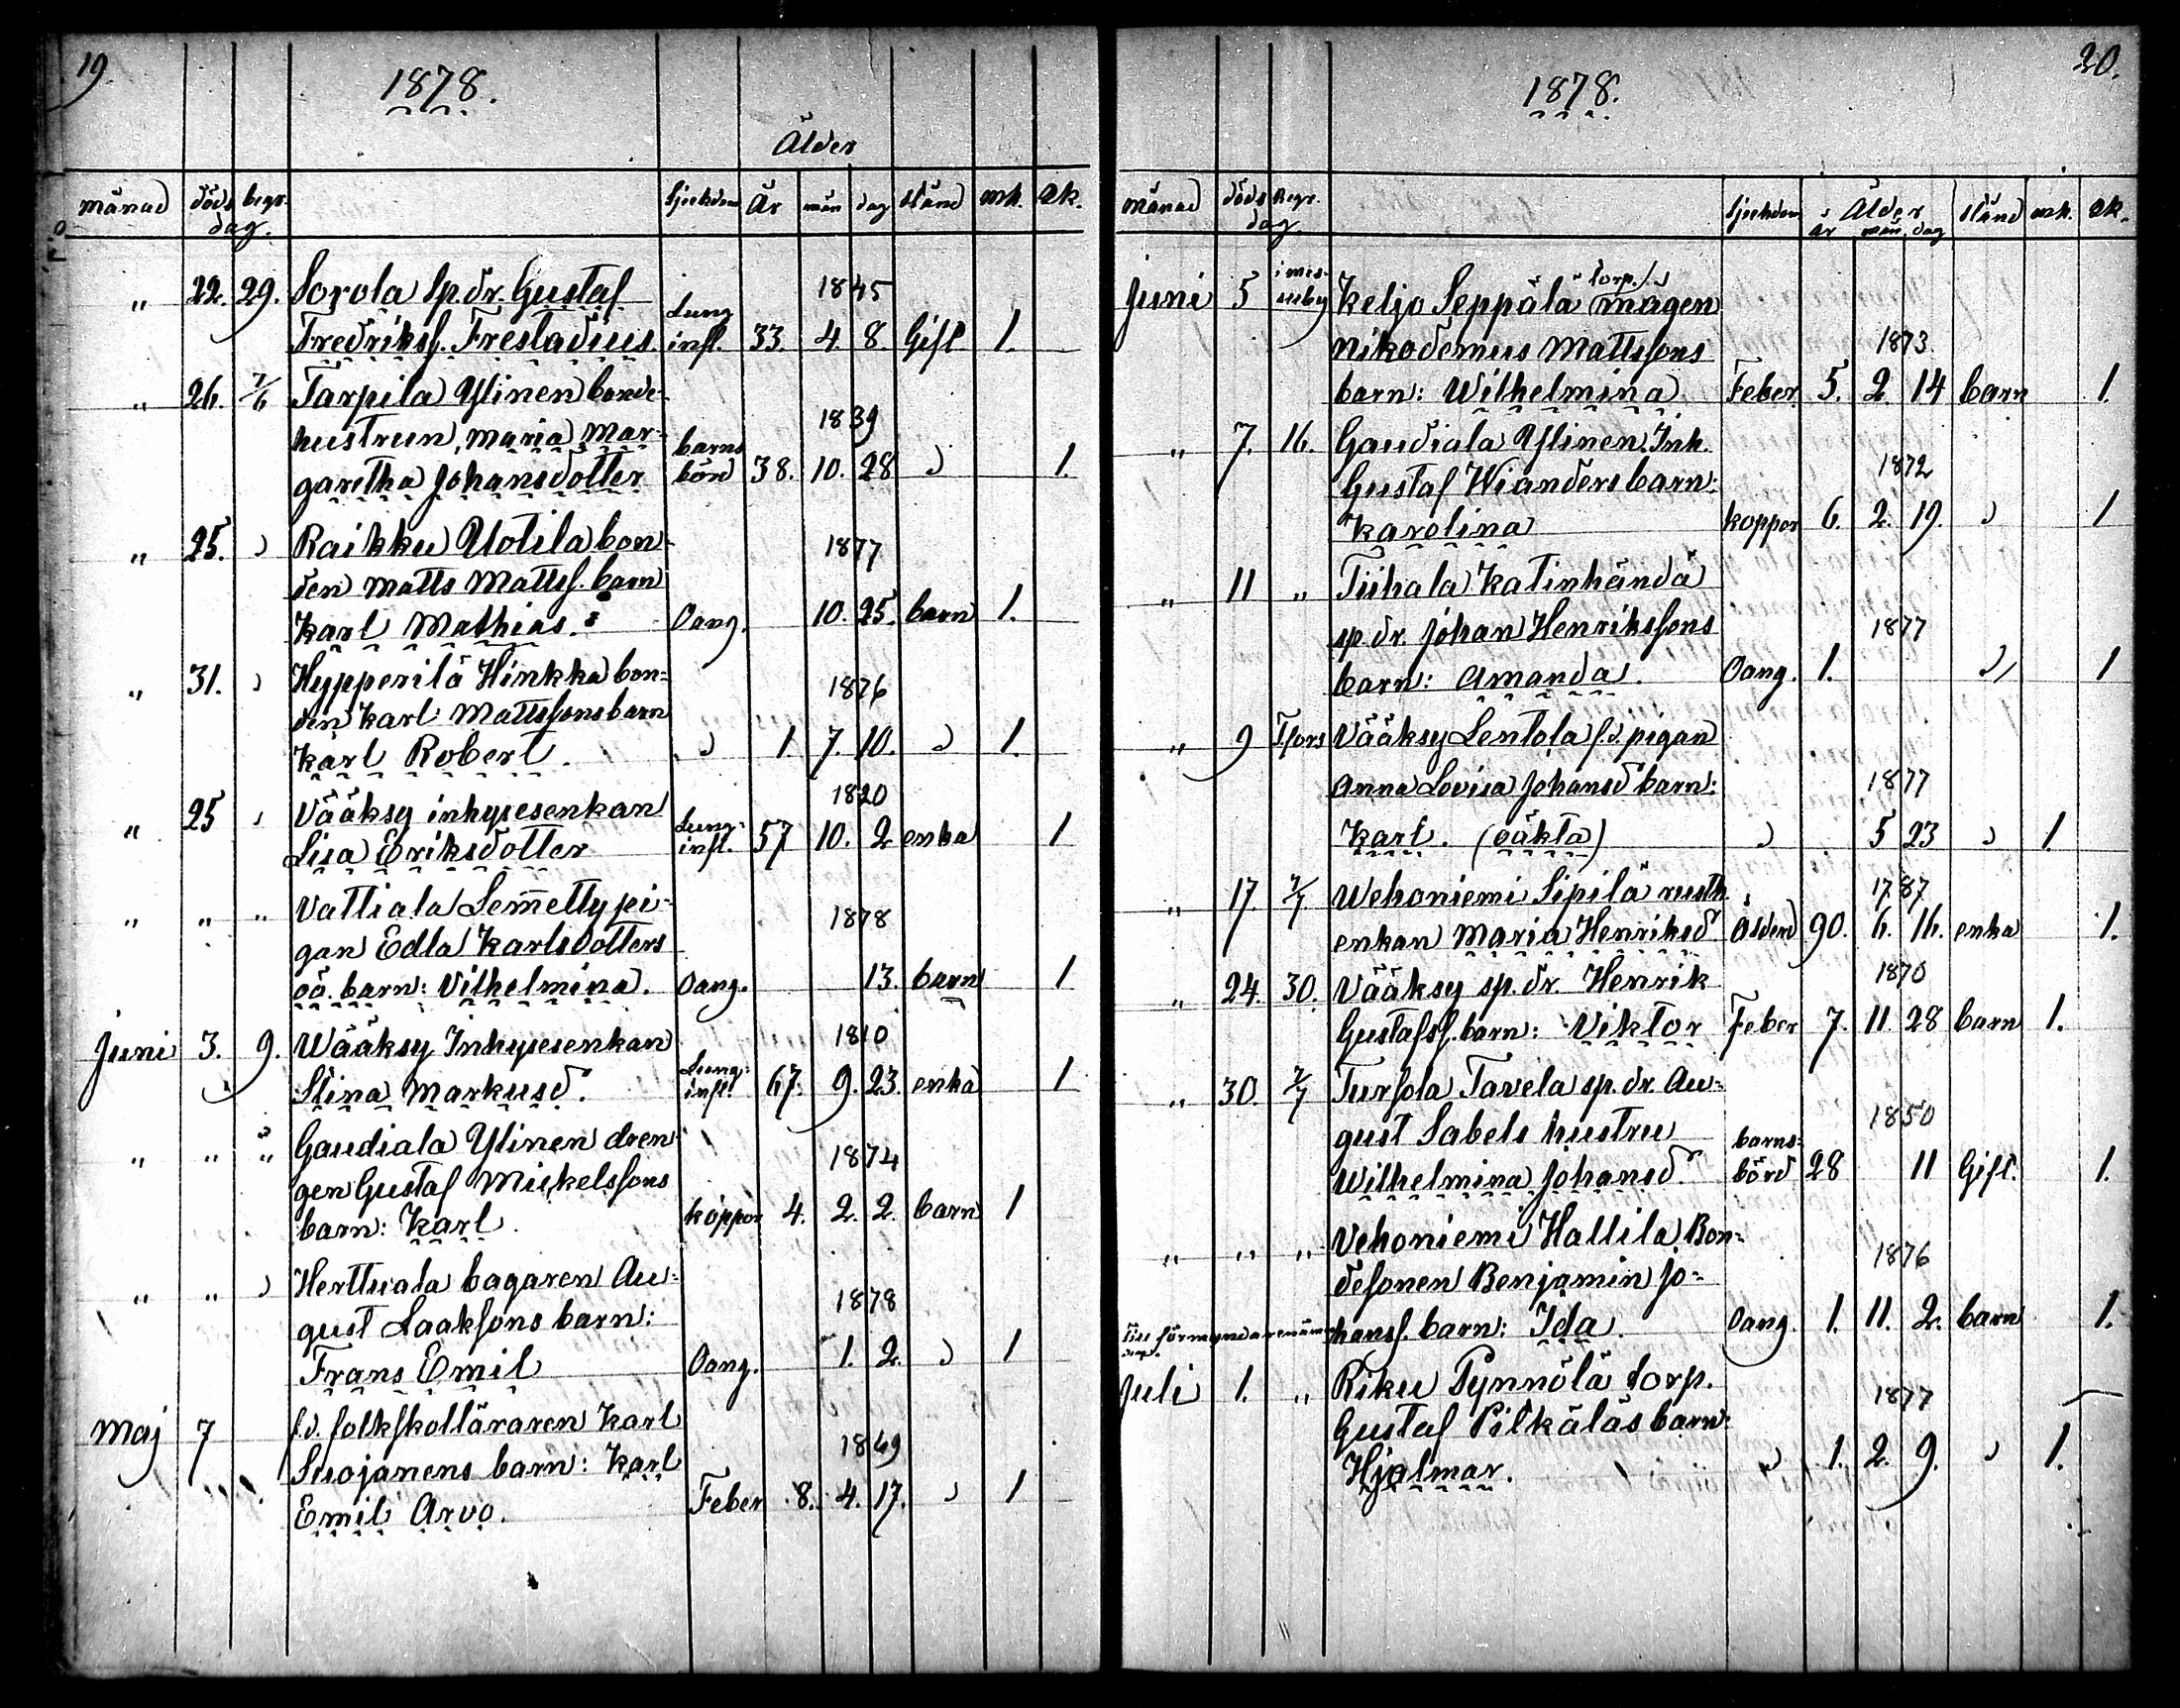 19.
1878.
Ålder
månad döds begr. dag. Sjukdom År mån dag stånd mk. qk.
" 22. 29. Sorola Sp.dr. Gustaf 1845
Fredrikss. Frestadius. Lung infl. 33. 4. 8. Gift 1.
" 26. 7/6 Tarpila Ylinen bonde-
hustrun, Maria Mar- 1839
garetha Johansdotter barns börd 38. 10. 28 " 1.
" 25. " Raikku Uotila bon- 1877
den Matts Mattss. barn
Karl Mathias. Oang. 10. 25. barn 1.
" 31. " Hypperilä Hinkka bon- 1876
den Karl Mattssons barn
Karl Robert. " 1. 7. 10. " 1.
" 25 " Vääksy inhysesenkan 1820
Lisa Eriksdotter Lung- infl. 57 10. 2 enka 1
" " " Vattiala Lemetty pi- 1878
gan Edla Karlsdotters
oä. barn: Vilhelmina. Oang. 13. barn 1
Juni 3. 9. Wääksy Inhysesenkan 1810
Stina Markusd. Lung- infl. 67. 9. 23. enka 1
" " " Gaudiala Ylinen dren-
gen Gustaf Mickelssons 1874
barn: Karl. koppor 4. 2. 2. barn 1
" " " Herttuala bagaren Au-
gust Laaksons barn: 1878
Frans Emil Oang. 1. 2. " 1
Maj 7 f.d. folkskolläraren Karl
Suojanens barn: Karl 1869
Emil Arvo. Feber 8. 4. 17. " 1
20.
1878.
Månad döds Begr. dag Sjukdom Ålder år mån dag stånd mk. qk.
Juni 5 Keljo Seppälä torp. magen
Nikodemus Mattssons 1873.
barn: Wilhelmina Feber 5. 2. 14 barn 1.
" 7. 16. Gaudiala Ylinen. Inh.
Gustaf Wianders barn: 1872
Karolina koppor 6. 2. 19. " 1
" 11 " Tiihala Katinhändä
sp.dr. Johan Henrikssons 1877
barn: Amanda. Oang. 1. " 1
" 9 T.fors Vääksy Lentola f.d. pigan
Anna Lovisa Johansd barn: 1877
Karl. (oäkta) " 5 23 " 1.
" 17. 7/7 Wehoniemi Sipilä rusth. 1787
enkan Maria Henriksd Ålderd 90. 6. 16. enka 1.
" 24. 30. Vääksy sp.dr. Henrik 1870
Gustafss. barn: Viktor Feber 7. 11. 28 barn 1.
" 30. 7/7 Tursola Tavela sp.dr. Au-
gust Sabels hustru 1850
Wilhelmina Johansd. barns- börd 28 11 Gift. 1.
" " " Vehoniemi Hallila Bon-
desonen Benjamin Jo- 1876
hanss. barn: Ida. Oang. 1. 11. 2. barn 1.
Juli 1. " Riku Pynnölä torp.
Gustaf Pilkäläs barn: 1877
Hjalmar. " 1. 2. 9. " 1.